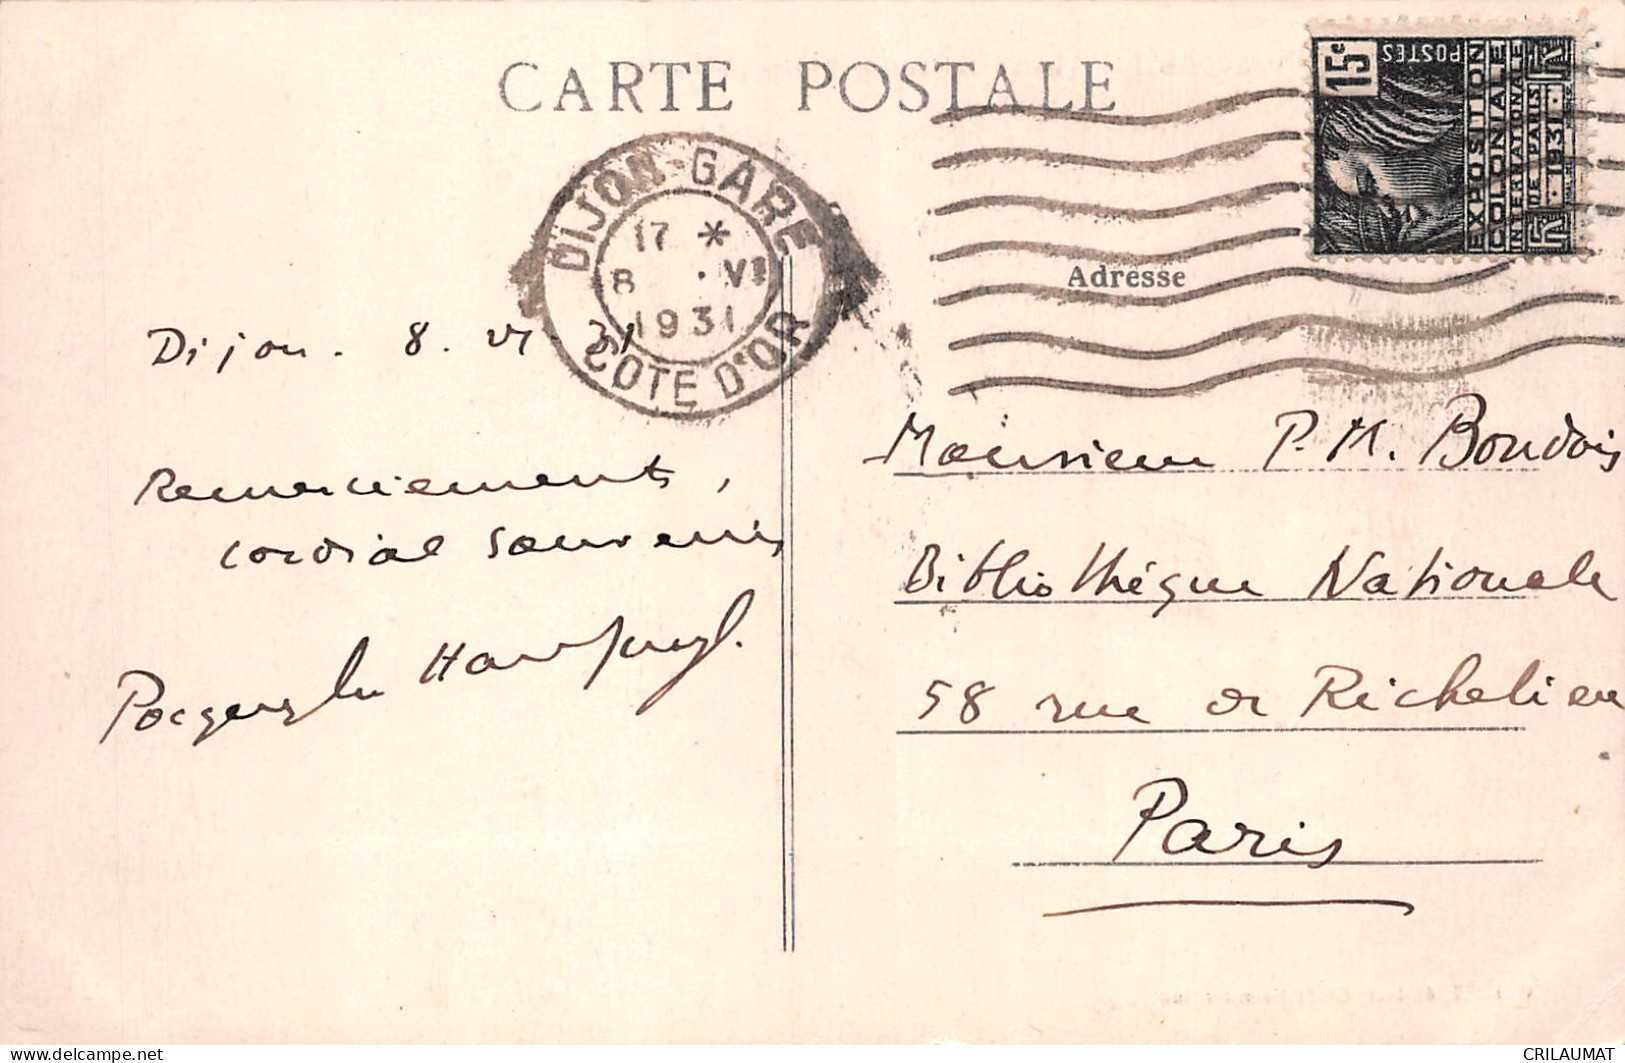 CARTE POSTALE
15c
POSTES
EXPOSITION
COLONIALE
INTERNATIONALE
DE PARIS
· 1931 ·
DIJON-GARE
17 *
8 · VI
1931
COTE D'OR
Adresse
Dijon. 8. VI. 31
Remerciements,
cordial souvenir
Monsieur P. M. Bondois
Bibliothèque Nationale
58 rue de Richelieu
Paris
www.delcampe.net
CRILAUMAT